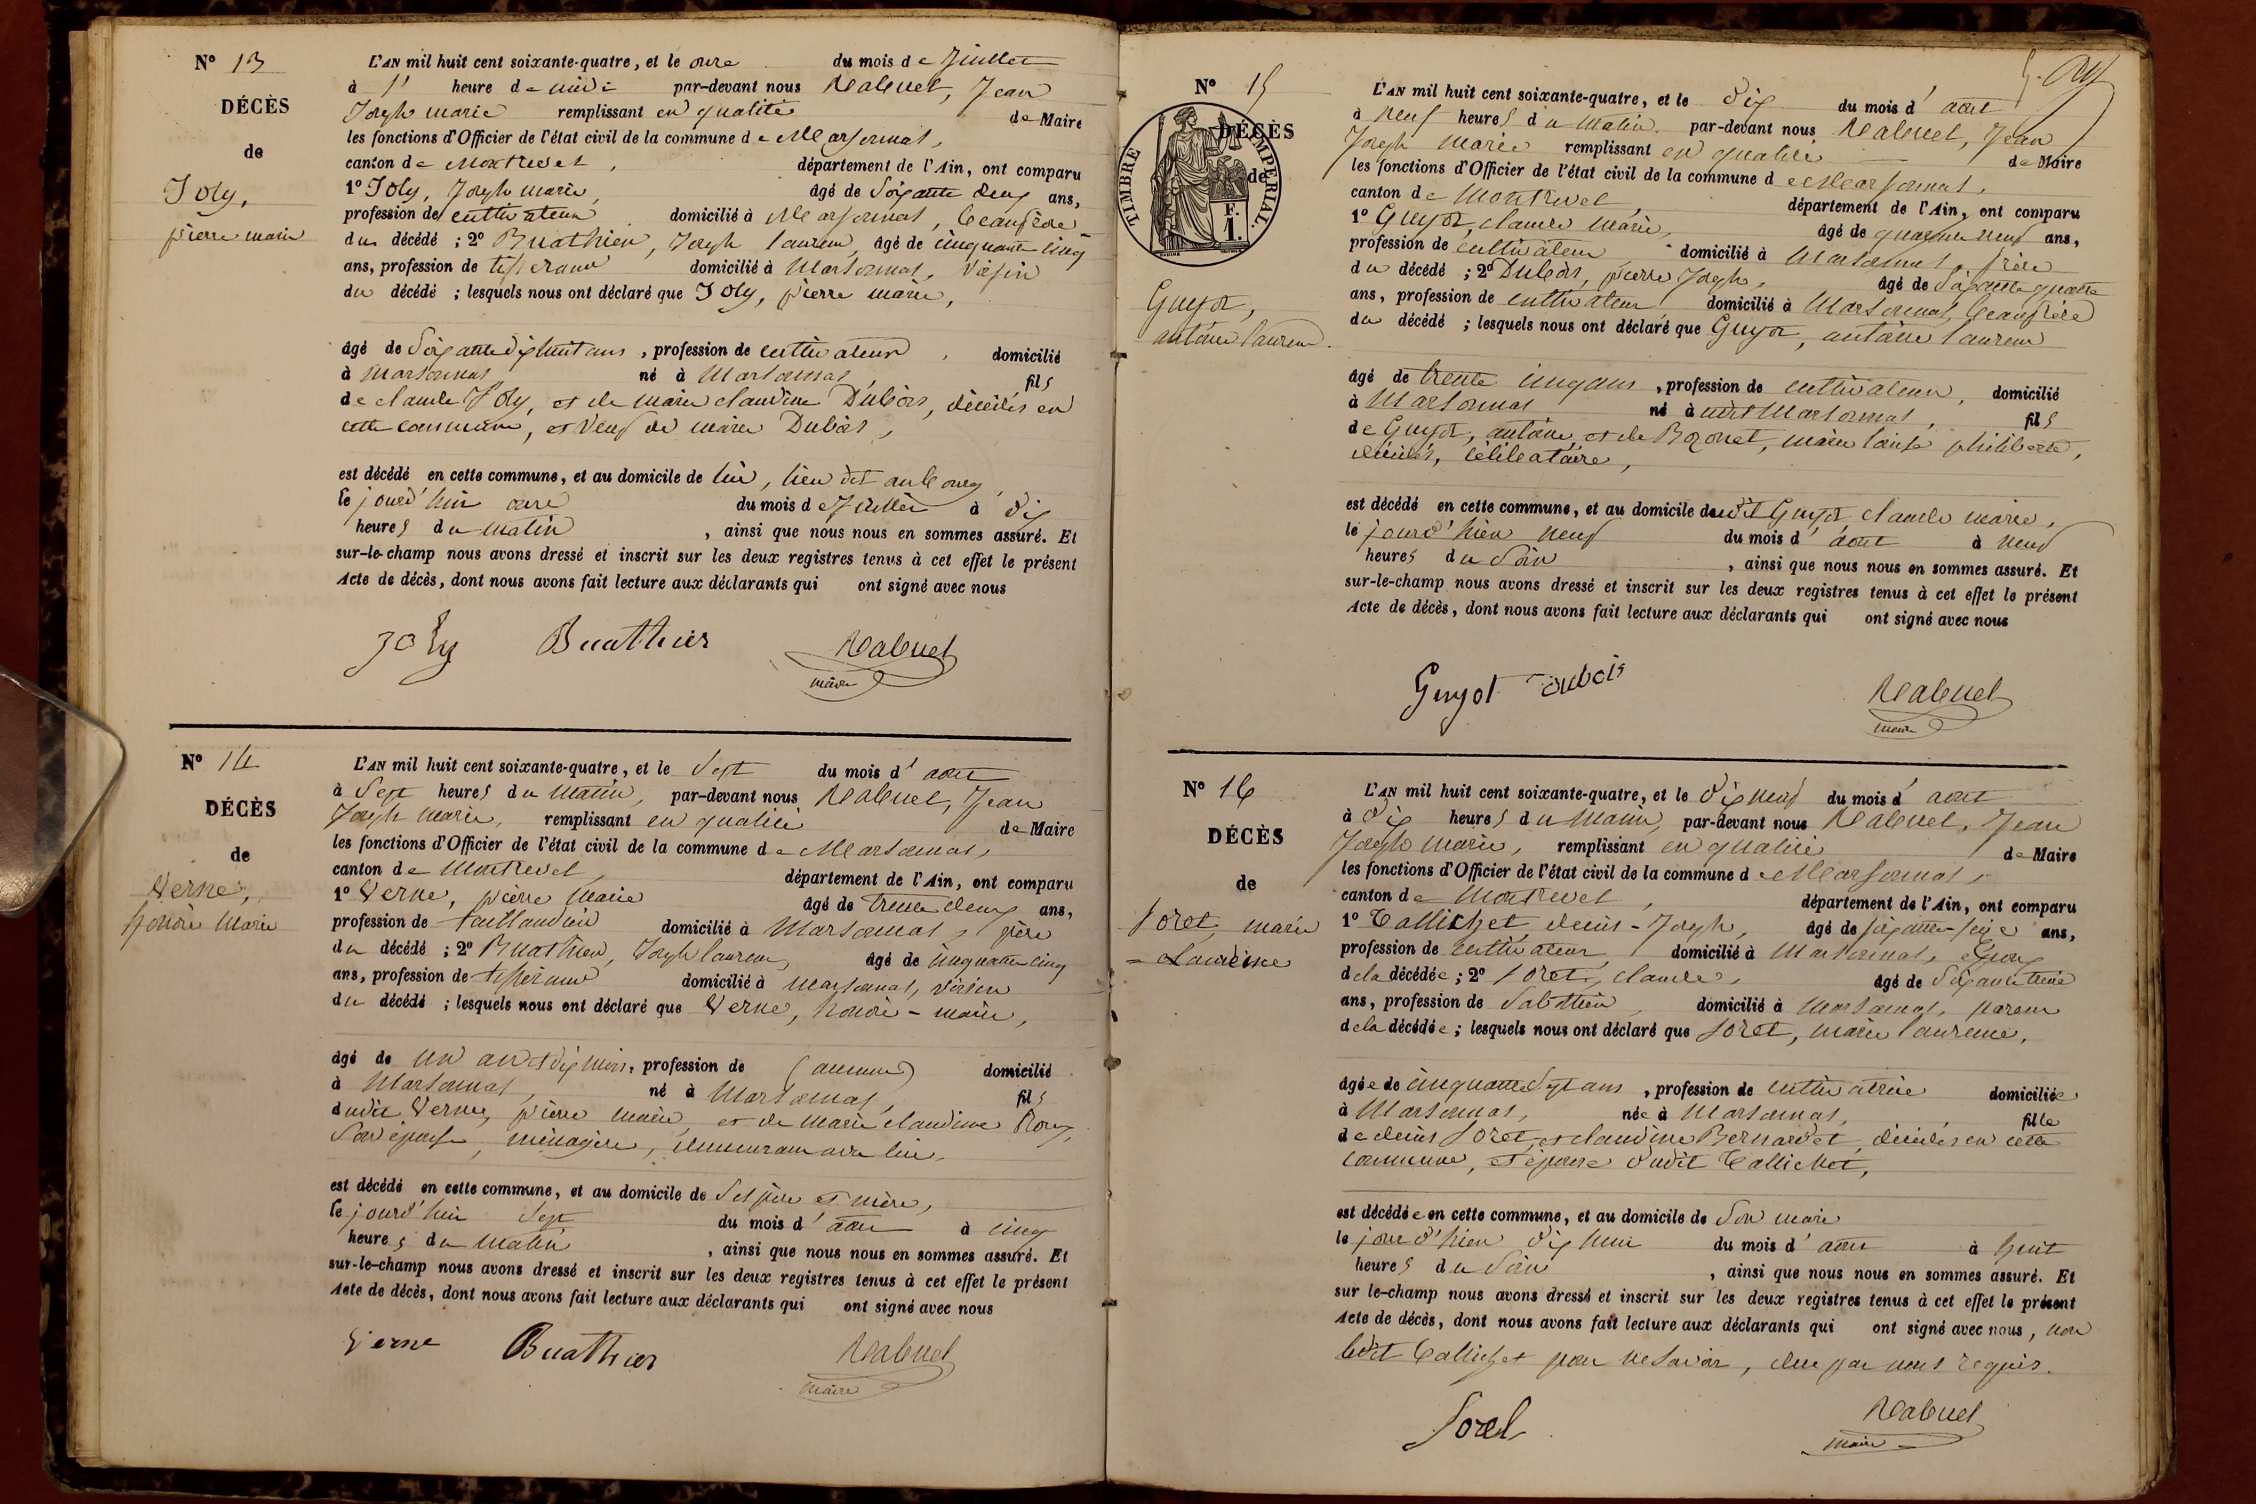 N° 13
DÉCÈS
de
Joly,
pierre marie
L'AN mil huit cent soixante-quatre, et le onze du mois de Juillet
à 1 heure de midi par-devant nous Rabuel, Jean
Joseph marie remplissant en qualité de Maire
les fonctions d'Officier de l'état civil de la commune de Marsonnas,
canton de Montrevel, département de l'Ain, ont comparu
1° Joly, Joseph marie, âgé de Soixante deux ans,
profession de cultivateur domicilié à Marsonnas, beaufrère
du décédé ; 2° Buathier, Joseph laurent, âgé de cinquante cinq
ans, profession de tisserand domicilié à Marsonnas, voisin
du décédé ; lesquels nous ont déclaré que Joly, pierre marie,
âgé de Soixante dix huit ans, profession de cultivateur, domicilié
à Marsonnas né à Marsonnas, fils
de claude Joly, et de marie claudine Dubois, décédés en
cette commune, et veuf de marie Dubois,
est décédé en cette commune, et au domicile de lui, lieu dit au bourg
le jourd'hui onze du mois de Juillet à dix
heures du matin, ainsi que nous nous en sommes assuré. Et
sur-le-champ nous avons dressé et inscrit sur les deux registres tenus à cet effet le présent
Acte de décès, dont nous avons fait lecture aux déclarants qui ont signé avec nous
Joly Buathier Rabuel
maire
N° 14
DÉCÈS
de
Verne,
honoré Marie
L'AN mil huit cent soixante-quatre, et le Sept du mois d'aout
à Sept heures du Matin, par-devant nous Rabuel, Jean
Joseph Marie, remplissant en qualité de Maire
les fonctions d'Officier de l'état civil de la commune de Marsonnas,
canton de Montrevel, département de l'Ain, ont comparu
1° Verne, pierre Marie âgé de trente deux ans,
profession de taillandier domicilié à Marsonnas, père
du décédé ; 2° Buathier, Joseph laurent, âgé de cinquante cinq
ans, profession de tisserand domicilié à Marsonnas, voisin
du décédé ; lesquels nous ont déclaré que Verne, honoré - marie,
âgé de un an et dix mois, profession de (aucune) domicilié
à Marsonnas, né à Marsonnas, fils
dudit Verne, pierre marie, et de marie claudine Roux,
Son épouse, ménagère, demeurant avec lui,
est décédé en cette commune, et au domicile de Ses père et mère,
le jourd'hui Sept du mois d'aout à cinq
heures du matin, ainsi que nous nous en sommes assuré. Et
sur-le-champ nous avons dressé et inscrit sur les deux registres tenus à cet effet le présent
Acte de décès, dont nous avons fait lecture aux déclarants qui ont signé avec nous
Verne Buathier Rabuel
maire
N° 15
DÉCÈS
de
TIMBRE IMPERIAL.
F.
1.
Guyot,
antoine laurent.
L'AN mil huit cent soixante-quatre, et le dix du mois d'aout
à Neuf heures du Matin. par-devant nous Rabuel, Jean
Joseph Marie remplissant en qualité de Maire
les fonctions d'Officier de l'état civil de la commune de Marsonnas,
canton de Montrevel, département de l'Ain, ont comparu
1° Guyot, claude marie, âgé de quarante neuf ans,
profession de cultivateur domicilié à Marsonnas, frère
du décédé ; 2° Dubois, pierre Joseph, âgé de Soixante quatre
ans, profession de cultivateur domicilié à Marsonnas, beaufrère
du décédé ; lesquels nous ont déclaré que Guyot, antoine laurent
âgé de trente cinq ans, profession de cultivateur, domicilié
à Marsonnas né à Marsonnas, fils
de Guyot, antoine, et de Bozonet, marie louise philiberte,
décédés, célibataire,
est décédé en cette commune, et au domicile dudit Guyot, claude marie,
le jourd'hier neuf du mois d'aout à neuf
heures du Soir, ainsi que nous nous en sommes assuré. Et
sur-le-champ nous avons dressé et inscrit sur les deux registres tenus à cet effet le présent
Acte de décès, dont nous avons fait lecture aux déclarants qui ont signé avec nous
Guyot Dubois Rabuel
maire
N° 16
DÉCÈS
de
Soret, marie
L'AN mil huit cent soixante-quatre, et le dix neuf du mois d'aout
à dix heures du Matin, par-devant nous Rabuel, Jean
Joseph Marie, remplissant en qualité de Maire
les fonctions d'Officier de l'état civil de la commune de Marsonnas,
canton de Montrevel, département de l'Ain, ont comparu
1° Callichet, denis-Joseph, âgé de soixante-seize ans,
profession de cultivateur, domicilié à Marsonnas, Epoux
de la décédée ; 2° Soret, claude, âgé de Soixante treize
ans, profession de Sabottier, domicilié à Marsonnas, parent
de la décédée ; lesquels nous ont déclaré que Soret, marie laurence,
âgée de cinquante Sept ans, profession de cultivatrice domiciliée
à Marsonnas, née à Marsonnas, fille
de denis Soret, et claudine Bernardet, décédés en cette
commune, et épouse dudit Callichet,
est décédée en cette commune, et au domicile de Son mari
le jour d'hier dix huit du mois d'aout à huit
heures du Soir, ainsi que nous nous en sommes assuré. Et
sur le-champ nous avons dressé et inscrit sur les deux registres tenus à cet effet le présent
Acte de décès, dont nous avons fait lecture aux déclarants qui ont signé avec nous, non
ledit Callichet pour ne savoir, de ce par nous requis.
Soret Rabuel
maire